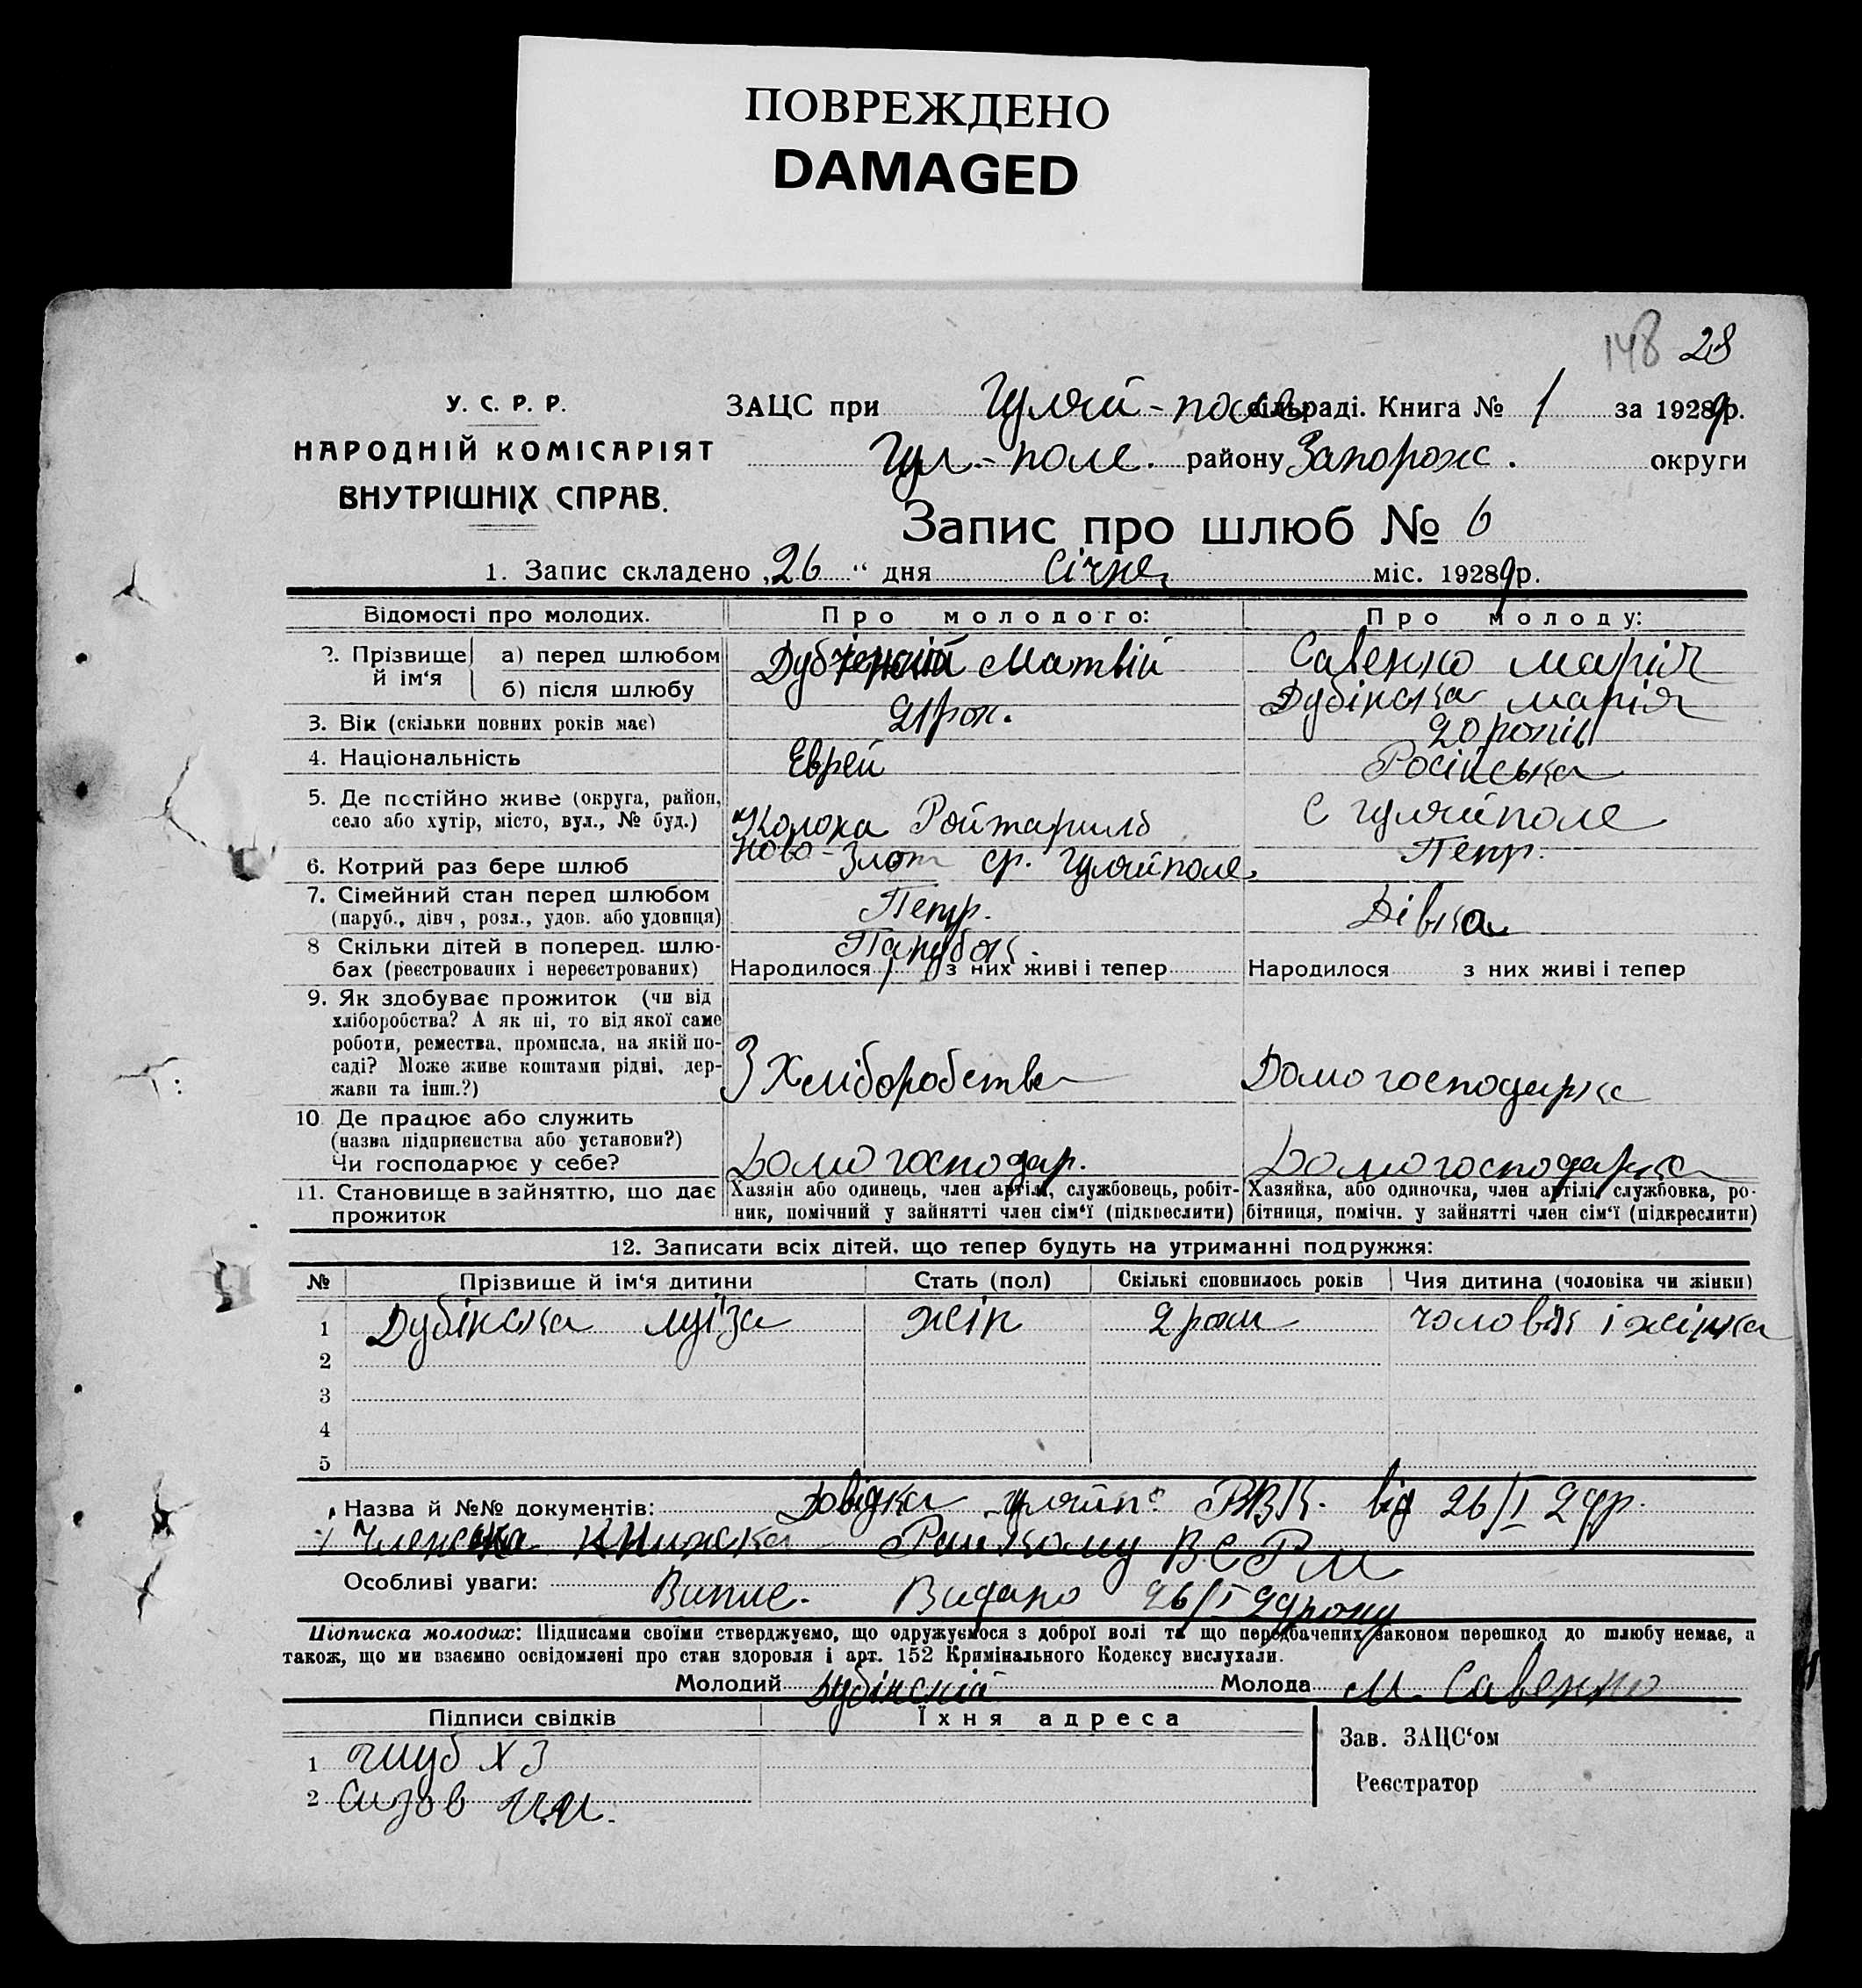 ПОВРЕЖДЕНО
DAMAGED
148 28
У. С. Р. Р.
НАРОДНІЙ КОМІСАРІЯТ
ВНУТРІШНІХ СПРАВ.
ЗАЦС при Гуляй-поль сільраді. Книга № 1 за 1929 р.
Гул.-поле. району Запорож. округи
Запис про шлюб № 6
1. Запис складено „26“ дня Січня міс. 1929 р.
Відомості про молодих. Про молодого: Про молоду:
2. Прізвище й ім‘я
а) перед шлюбом Дубінський Матвій Савенко Марія
б) після шлюбу Дубінска Марія
3. Вік (скільки повних років має) 21 рок. 20 років
4. Національність Еврей Росінська
5. Де постійно живе (округа, район, село або хутір, місто, вул., № буд.) С Гуляйполе
Ново-Злат ср. Гуляйполе.
6. Котрий раз бере шлюб Пепр. Пепр.
7. Сімейний стан перед шлюбом
(паруб., дівч., розл., удов. або удовиця) Парубок. Дівка
8 Скільки дітей в поперед. шлю-
бах (реєстрованих і нереєстрованих) Народилося з них живі і тепер Народилося з них живі і тепер
9. Як здобуває прожиток (чи від
хліборобства? А як ні, то від якої саме
роботи, ремества, промисла, на якій по-
саді? Може живе коштами рідні, дер-
жави та інш.?) З Хліборобства Домогосподарка
10 Де працює або служить
(назва підприємства або установи?)
Чи господарює у себе? Домогосподар. Домогосподарка
11. Становище в зайняттю, що дає
прожиток
Хазяїн або одинець, член артілі, службовець, робіт-
ник, помічний у зайнятті член сім‘ї (підкреслити)
Хазяйка, або одиночка, член артілі, службовка, ро-
бітниця, помічн. у зайнятті член сім‘ї (підкреслити)
12. Записати всіх дітей, що тепер будуть на утриманні подружжя:
№ Прізвище й ім‘я дитини Стать (пол) Скількі сповнилось років Чия дитина (чоловіка чи жінки)
1 Дубінска Луіза жін 2 роки чоловік і жінка
2
3
4
5
Назва й №№ документів: Довідка Гуляйп. РВК. від 26/I 29р.
Членська книжка ВСРМ
Особливі уваги: Видано 26/I 29 року
Підписка молодих: Підписами своїми стверджуємо, що одружуємося з доброї волі та що передбачених законом перешкод до шлюбу немає, а
також, що ми взаємно освідомлені про стан здоровля і арт. 152 Кримінального Кодексу вислухали.
Молодий Дубінский Молода М. Савенко
Підписи свідків Їхня адреса
1
2 Сизов
Зав. ЗАЦС‘ом
Реєстратор